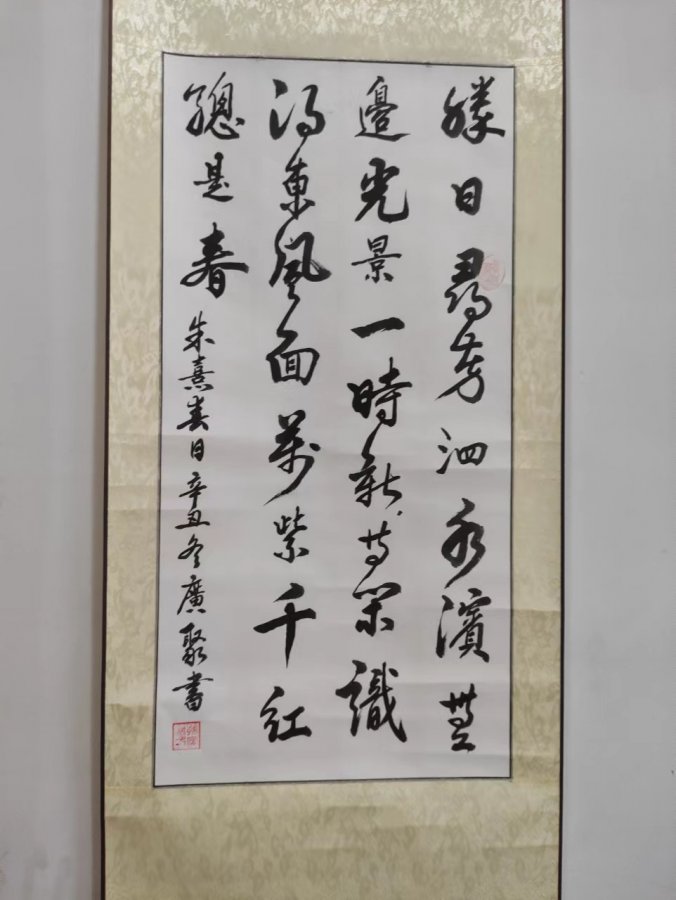 勝日尋芳泗水濱無
邊光景一時新等閑識
得東風面萬紫千紅
總是春
朱熹春日辛丑冬廣聚書